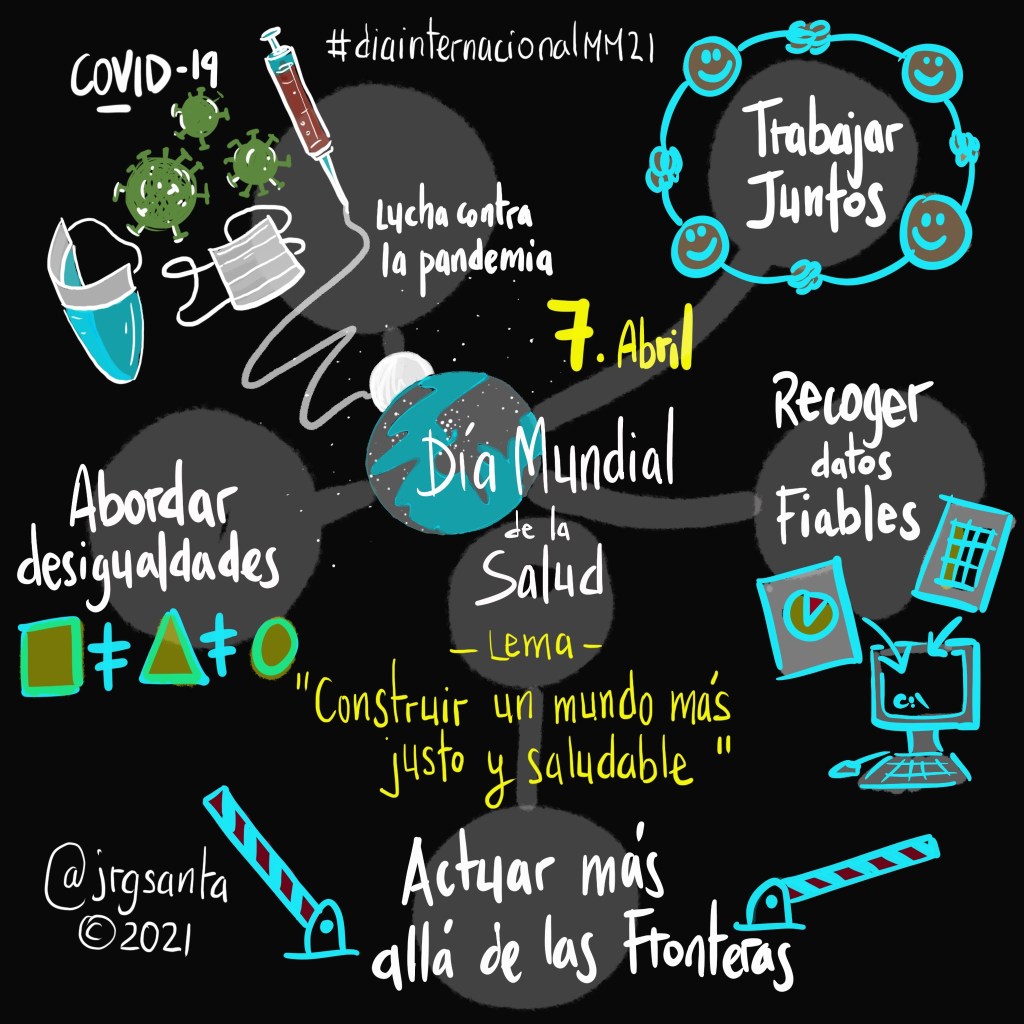 #diainternacionalMM21
COVID-19
Lucha contra
la pandemia
Trabajar
Juntos
7. Abril
Día Mundial
de la
Salud
- Lema -
"Construir un mundo más
justo y saludable"
Abordar
desigualdades
≠ ≠
Recoger
datos
Fiables
c:\
Actuar más
allá de las Fronteras
@jrgsanta
©2021